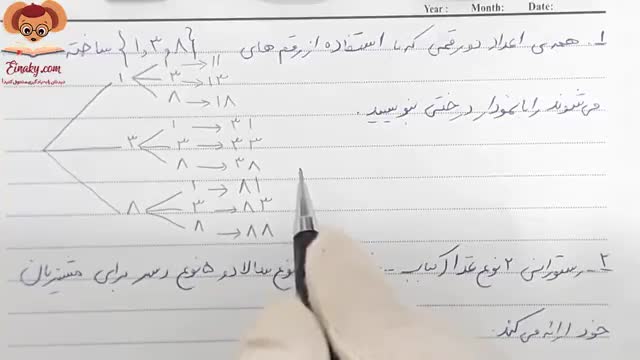 Year : Month: Date:
Einaky.com
۱_ همه‌ی اعداد دو رقمی که با استفاده از رقم های {۱,۳,۸} ساخته
می شوند را با نمودار درختی بنویسید.
۱ ۱ → ۱۱
۳ → ۱۳
۸ → ۱۸
۳ ۱ → ۳۱
۳ → ۳۳
۸ → ۳۸
۸ ۱ → ۸۱
۳ → ۸۳
۸ → ۸۸
۲_ رستورانی ۲ نوع غذا نوع سالاد و ۵ نوع دسر برای مشتریان
خود ارائه می کند.